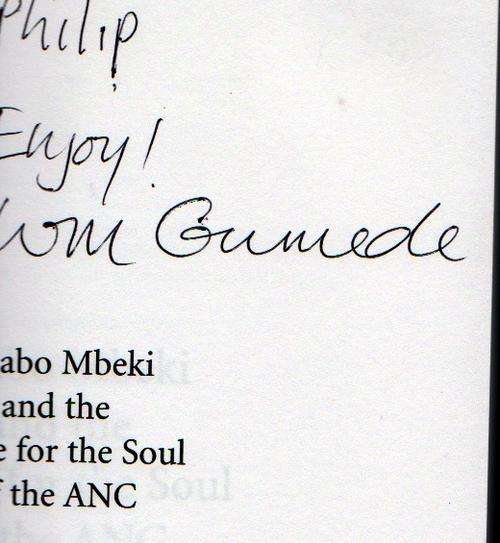 Philip
Enjoy!
Wm Gumede
abo Mbeki
and the
e for the Soul
f the ANC